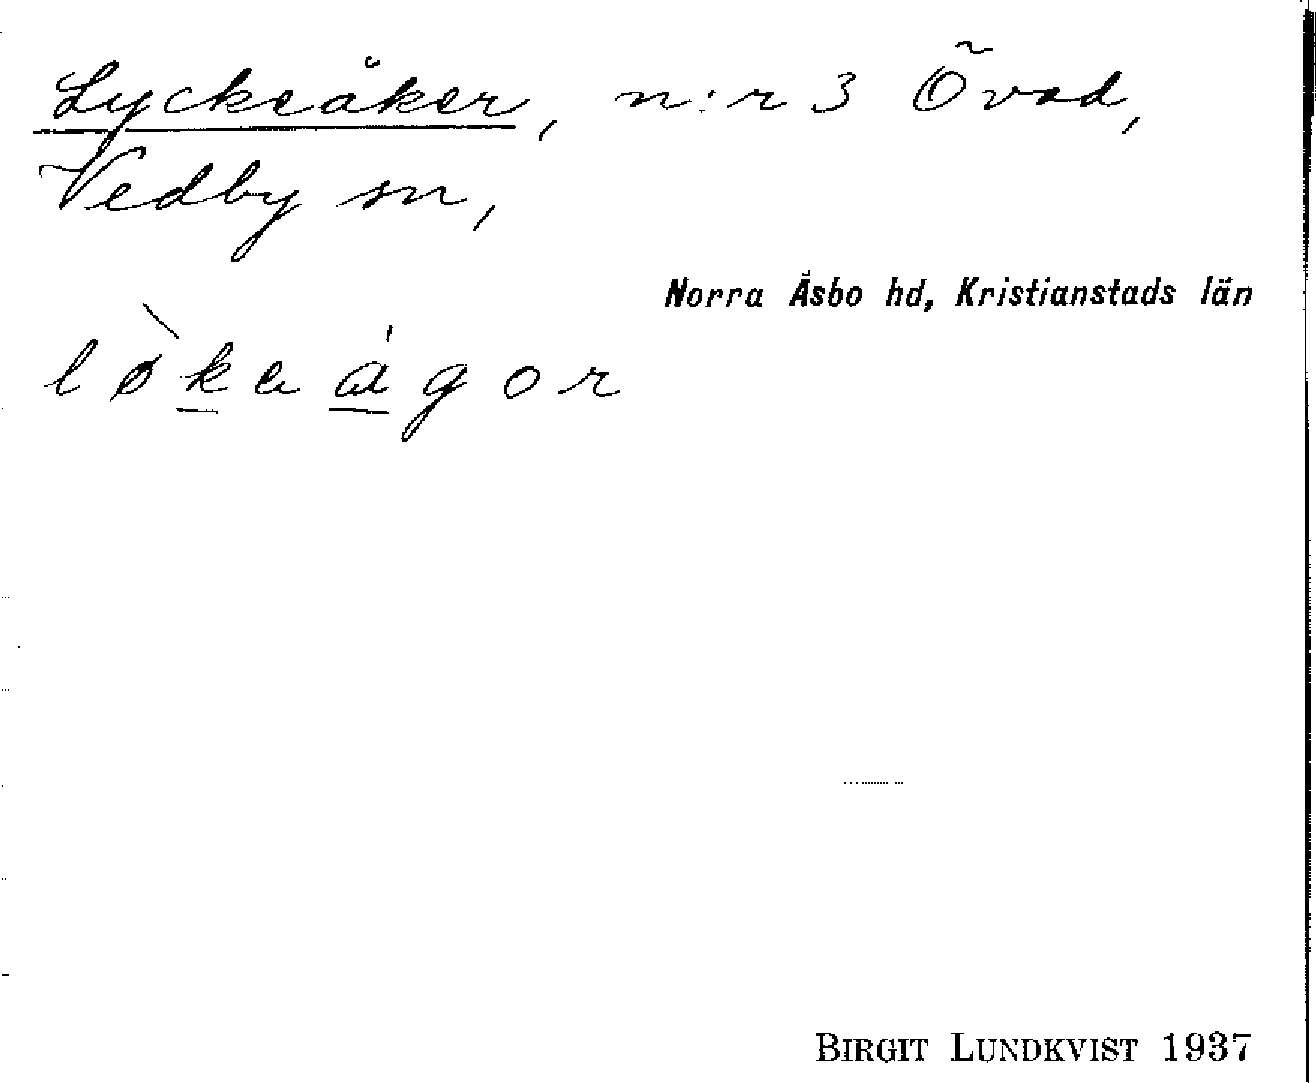 Lyckeåker, n:r 3 Övad,
Vedby sn,
Norra Åsbo hd, Kristianstads län
BIRGIT LUNDKVIST 1937